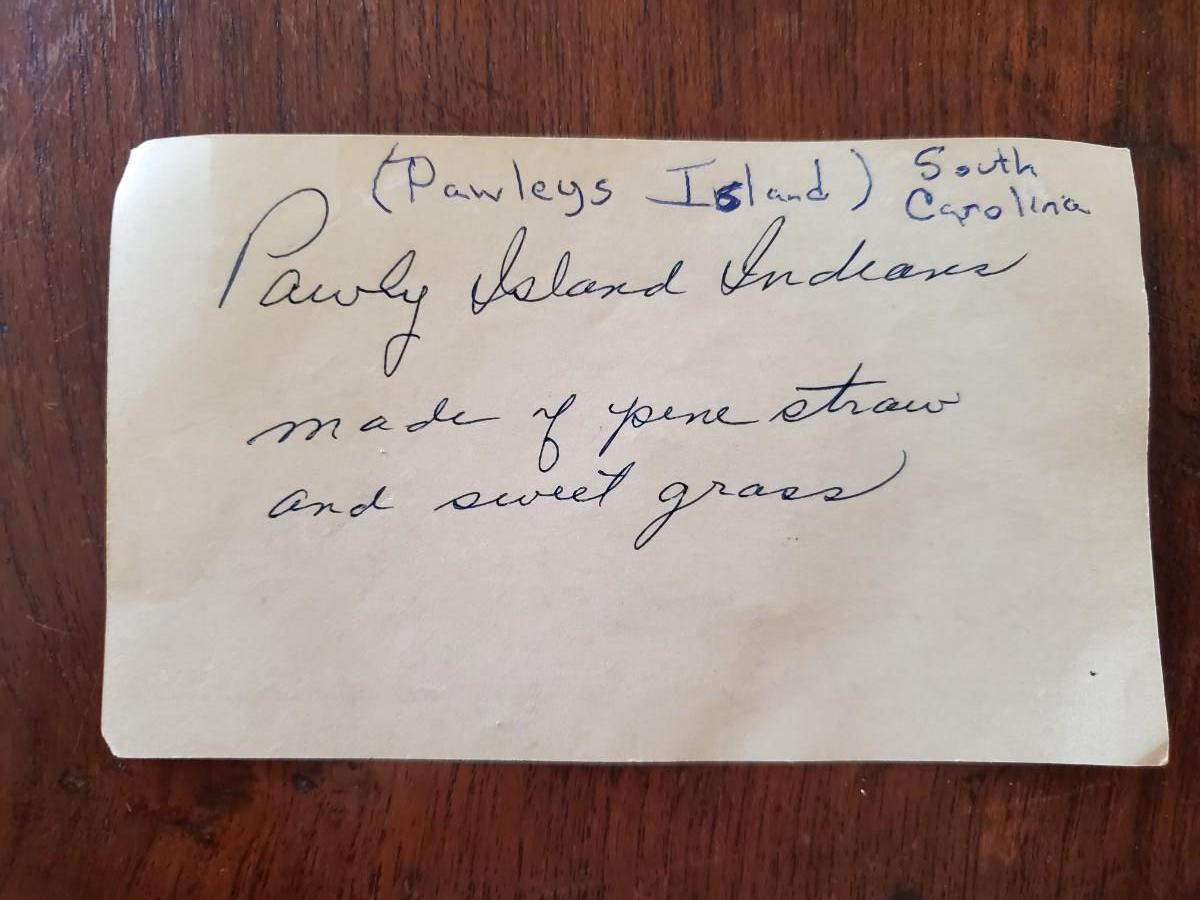 (Pawleys Island) South Carolina
Pawly Island Indians
made of pine straw
and sweet grass